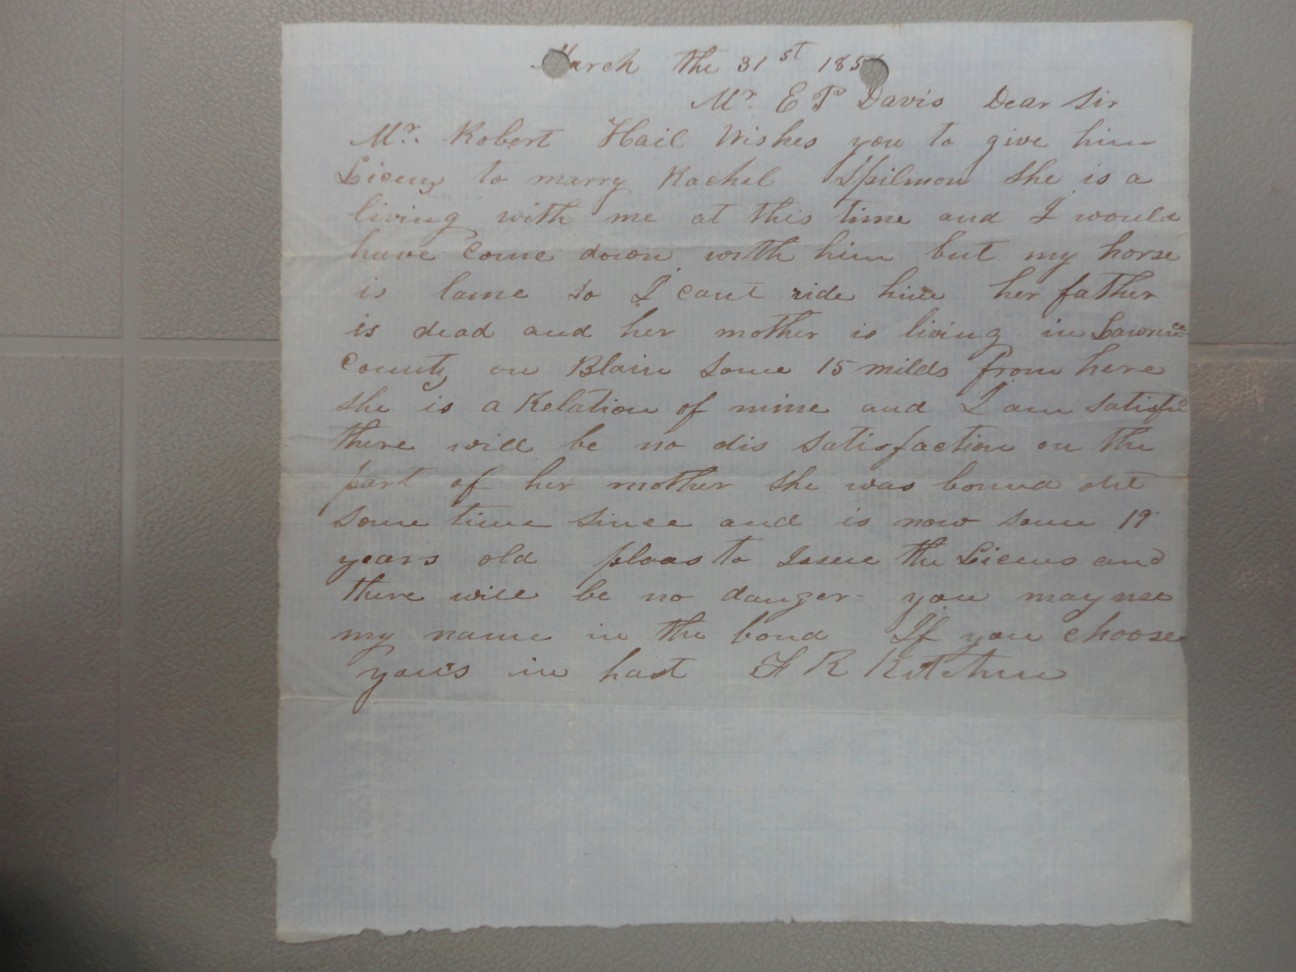 March the 31st 185
Mr. E P Davis Dear Sir
Mr. Robert Hail Wishes you to give him
Licens to marry Rachel Spilmon She is a
living with me at this time and I would
have come down with him but my horse
is lame so I cant ride him her father
is dead and her mother is living in Lawrnce
County on Blain Some 15 milds from here
She is a Relation of mine and I am Satisfid
there will be no dis satisfaction on the
part of her mother She was bound out
Some time Since and is now Some 19
years old pleas to Issue the Licens and
there will be no danger - you may use
my name in the bond If you choose
yours in hast R Kitchen